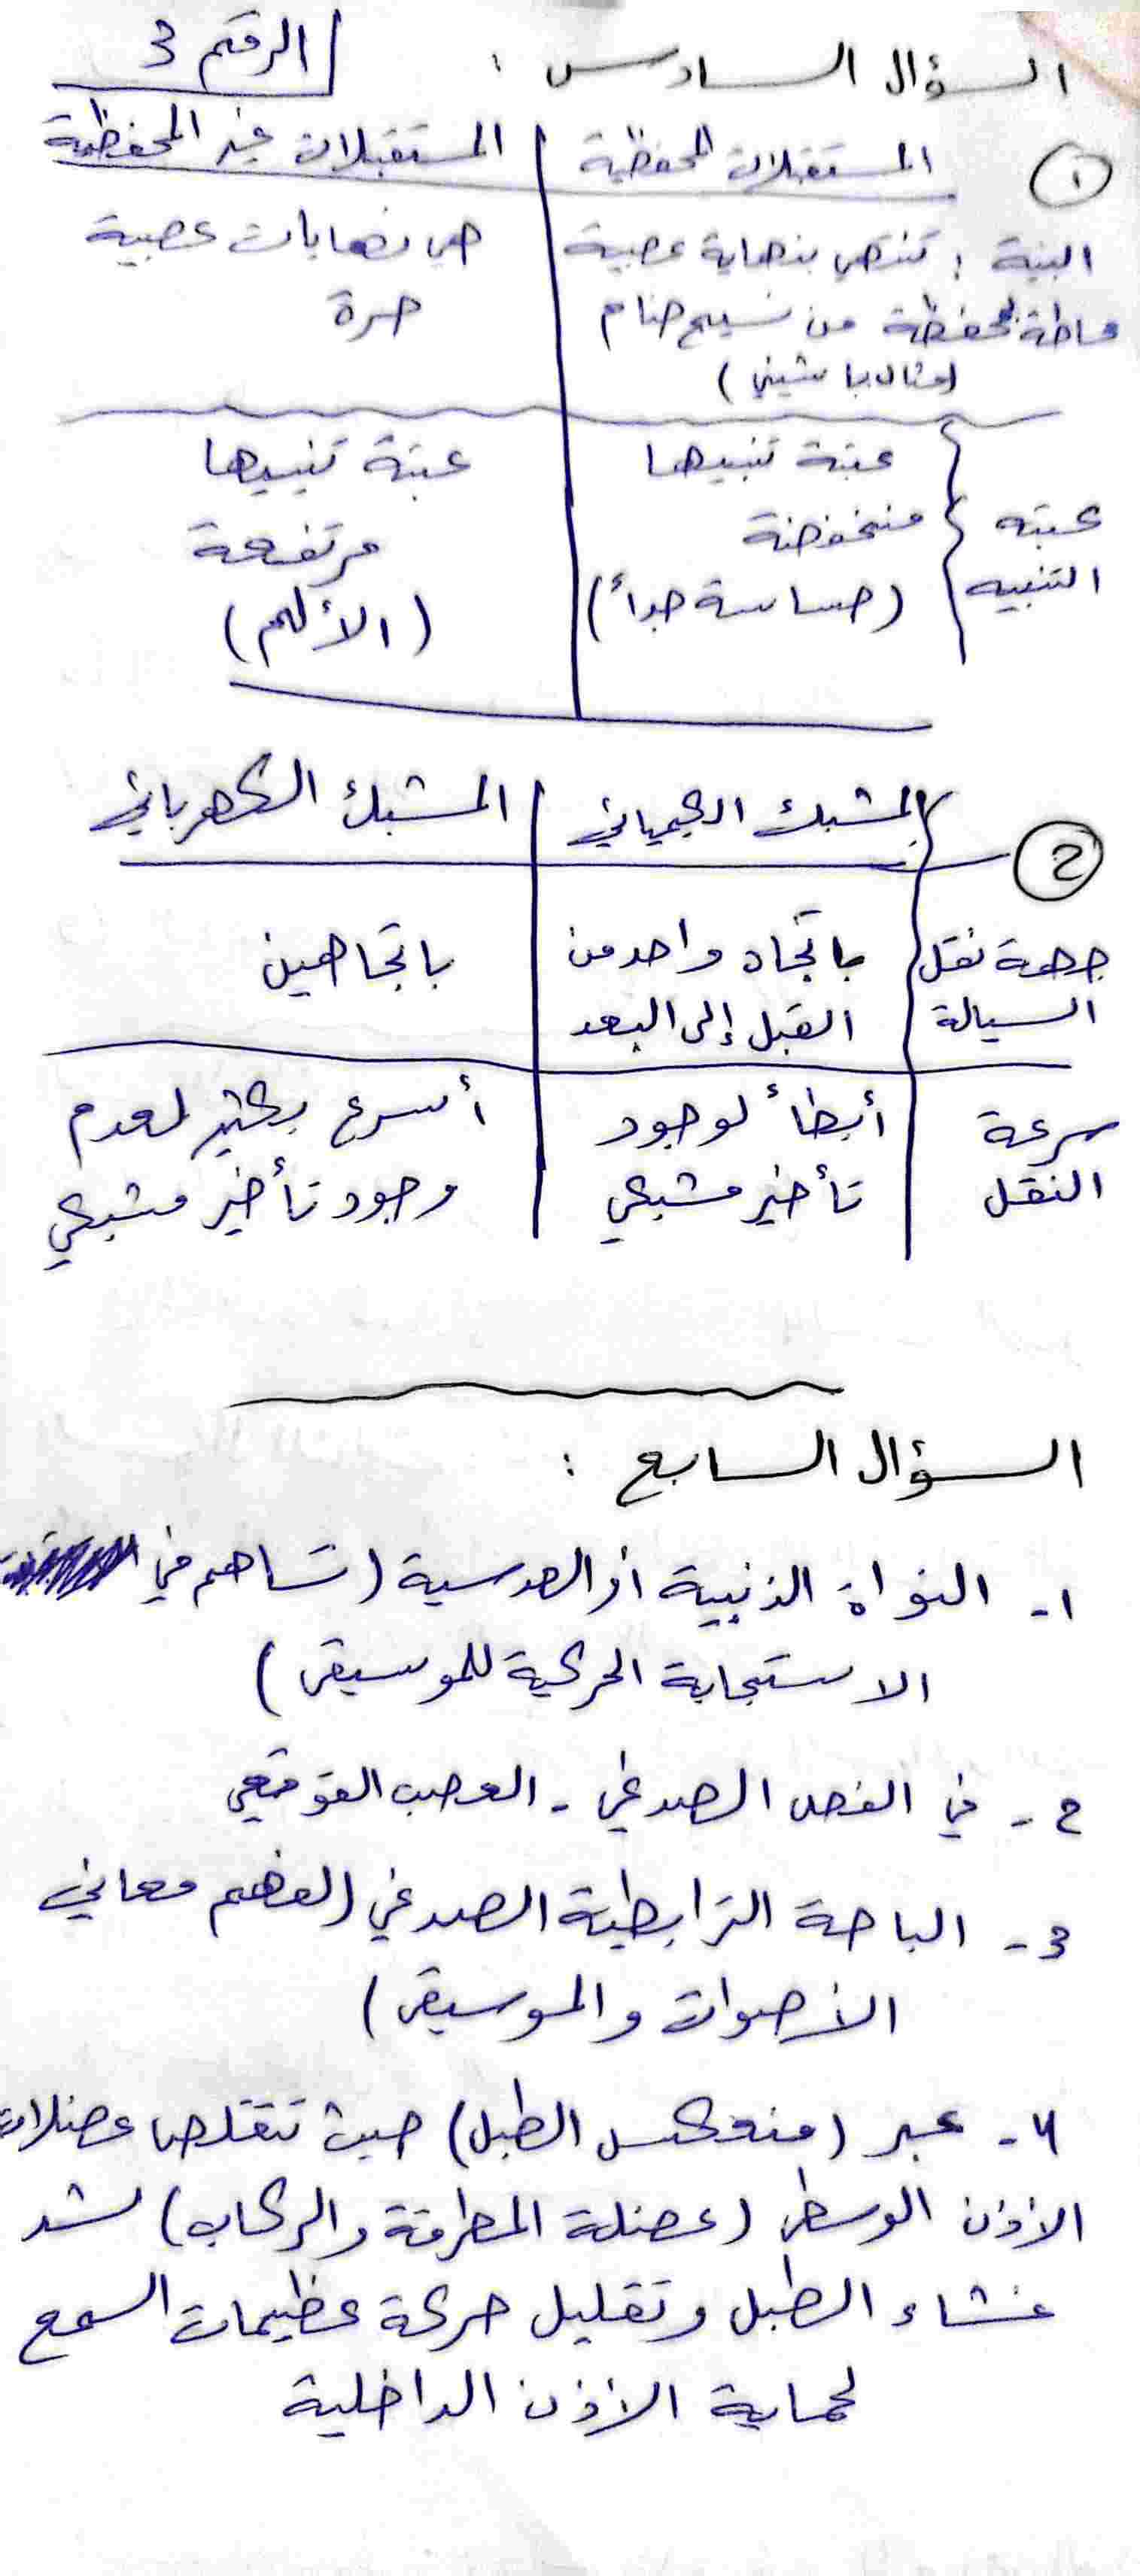 الرقم 3
السؤال السادس :
١
المستقبلات المحفظية | المستقبلات غير المحفظية
البنية : تنتهي بنهاية عصبية | هي نهايات عصبية
محاطة بمحفظة من نسيج ضام | حرة
(مثال باشيني)
عتبة تنبيهها | عتبة تنبيهها
عتبه | منخفضة | مرتفعة
التنبيه | (حساسة جداً) | (الألم)
2
المشبك الكيميائي | المشبك الكهربائي
جهة نقل | باتجاه واحد من | باتجاهين
السيالة | القبل إلى البعد
سرعة | أبطأ لوجود | أسرع بكثير لعدم
النقل | تأخير مشبكي | وجود تأخير مشبكي
السؤال السابع :
١- النواة الذنبية أو العدسية (تساهم في
الاستجابة الحركية للموسيقى)
2- في الفص الصدغي - العصب القوقعي
3- الباحة الترابطية الصدغي (لفهم معاني
الأصوات والموسيقى)
4- عبر (منعكس الطبل) حيث تتقلص عضلات
الأذن الوسطى (عضلة المطرقة والركاب) لشد
غشاء الطبل وتقليل حركة عظيمات السمع
لحماية الأذن الداخلية